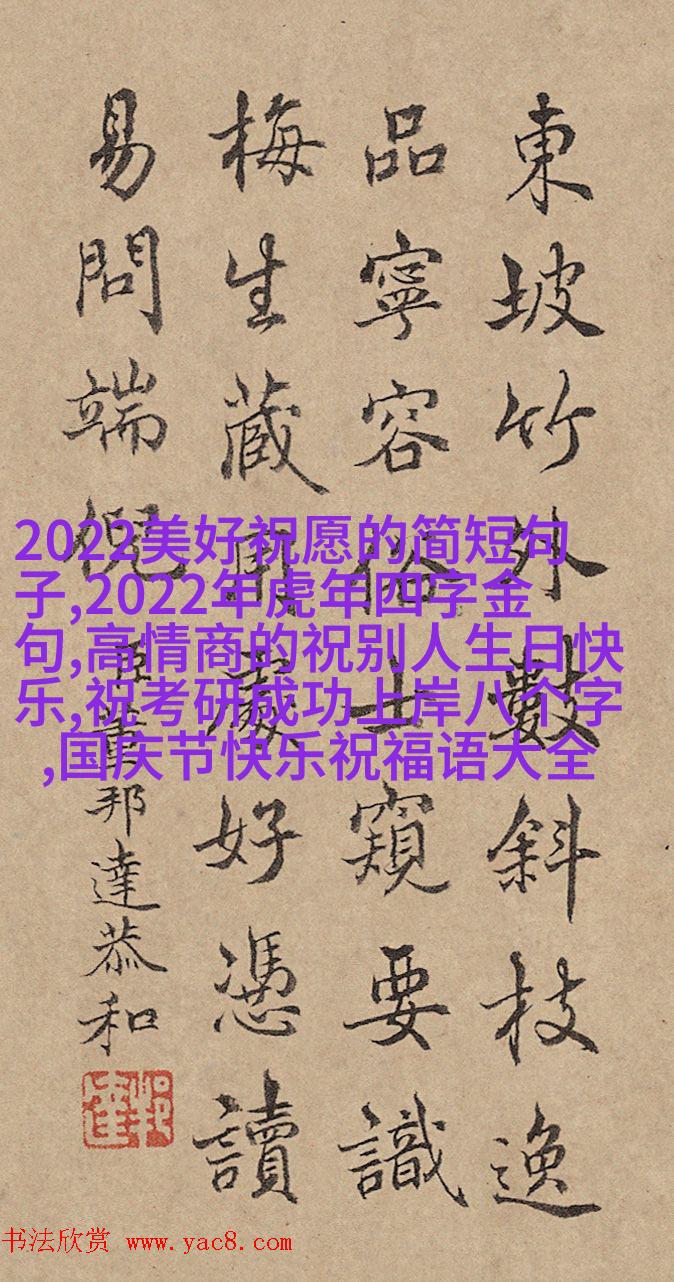 東坡竹外數斜枝逸
品寧容俗士窺要識
梅生藏用處好憑讀
易問端倪
臣董邦達恭和
2022美好祝愿的简短句
子,2022年虎年四字金
句,高情商的祝别人生日快
乐,祝考研成功上岸八个字
,国庆节快乐祝福语大全
书法欣赏 www.yac8.com